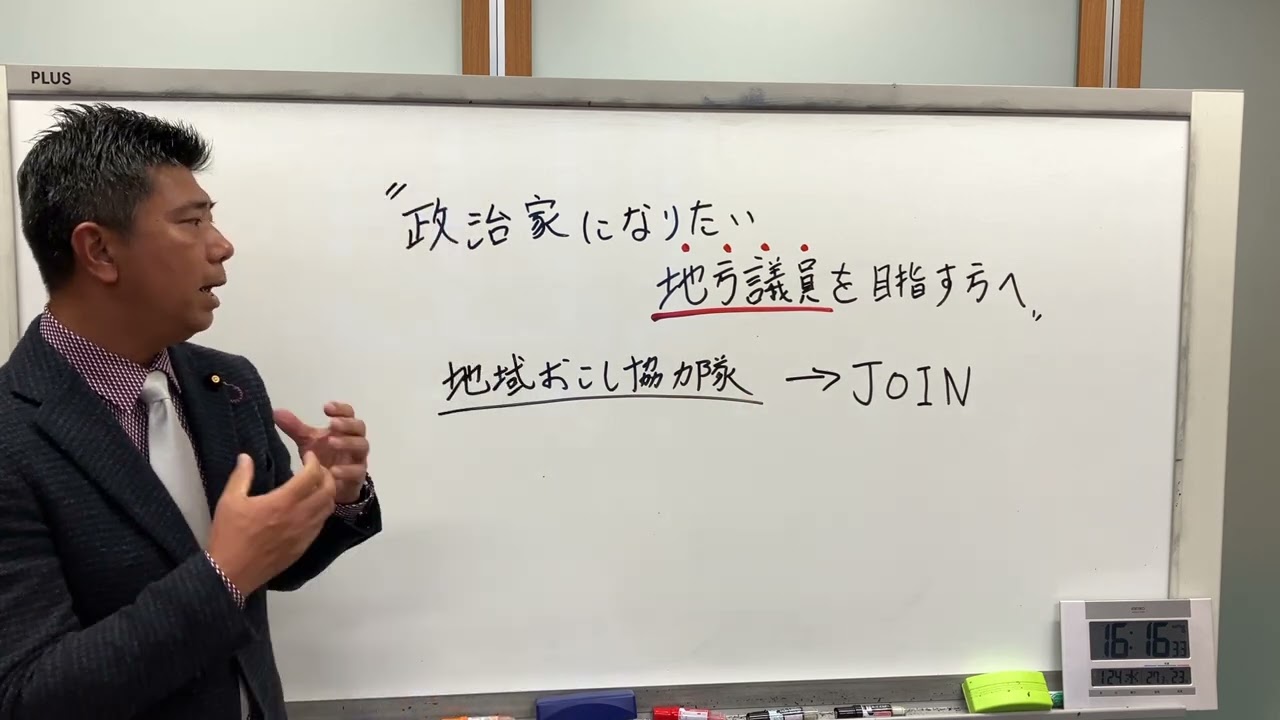 PLUS
〃政治家になりたい
地方議員を目指す方へ〃
地域おこし協力隊 → JOIN
SEIKO
16:16 33
1 24 水 27 23